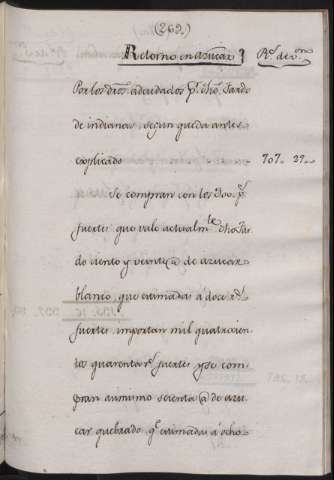 (269.)
Retorno en azucar } R.s de v.on
Por los dros. adeudados p.r dho. Fardo
de indianas, segun queda antes
explicado 707. 27
Se compran con los 300. p.s
fuertes que vale actualm.te dho Far-
do ciento y veinte @ de azucar
blanco, que estimadas á doce r.s
fuertes, importan mil quatrocien-
tos quarenta r.s fuertes, y se com-
pran asimismo sesenta @ de azu-
car quebrado, q.e estimadas á ocho